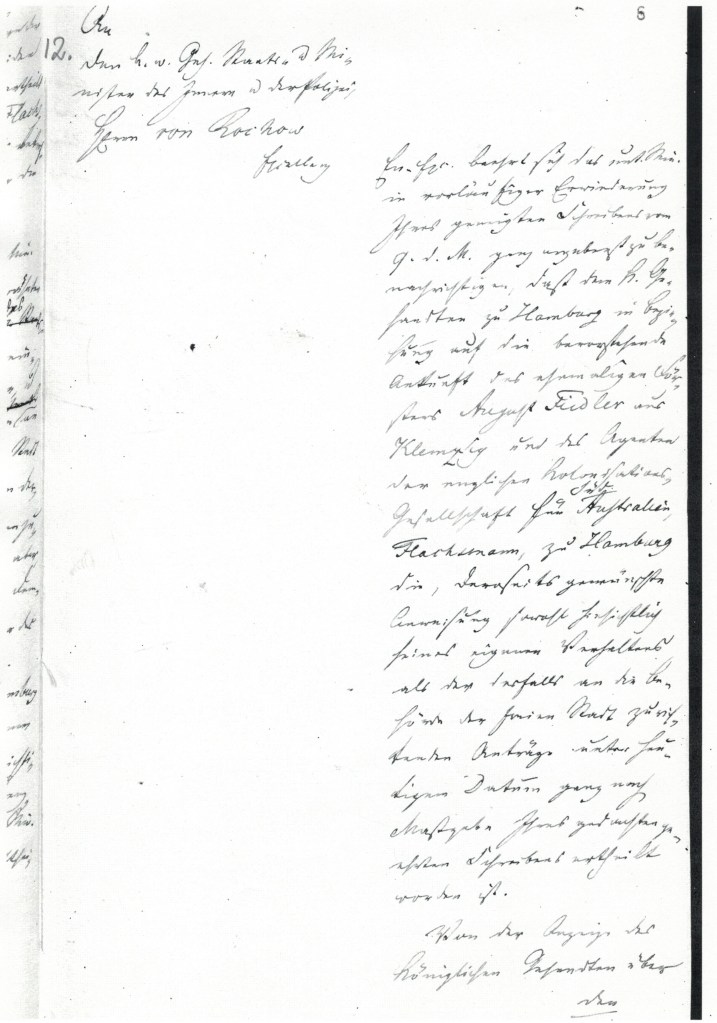 8
An
12. den k. w. Geh. Staats- u Mi-
nister des Innern u der Polizei,
Herrn von Rochow
Excellenz
Ew. Exc. beehrt sich das unt. Min.
in vorläufiger Erwiederung
Ihres geneigten Schreibens vom
9. d. M. ganz ergebenst zu be-
nachrichtigen, daß dem K. Ge-
sandten zu Hamburg in Bezie-
hung auf die bevorstehende
Ankunft des ehemaligen För-
sters August Fiedler aus
Klemzig und des Agenten
der englischen Kolonisations-
Gesellschaft für Süd
Australien,
Flachsmann, zu Hamburg
die, derseits gewünschte
Anweisung sowohl hinsichtlich
seines eigenen Verhaltens
als der desfalls an die Be-
hörde der freien Stadt zu rich-
tenden Anträge unter heu-
tigem Datum ganz nach
Maßgabe Ihres gedachten ge-
ehrten Schreibens ertheilt
worden ist.
Von der Anzeige des
Königlichen Gesandten über
den